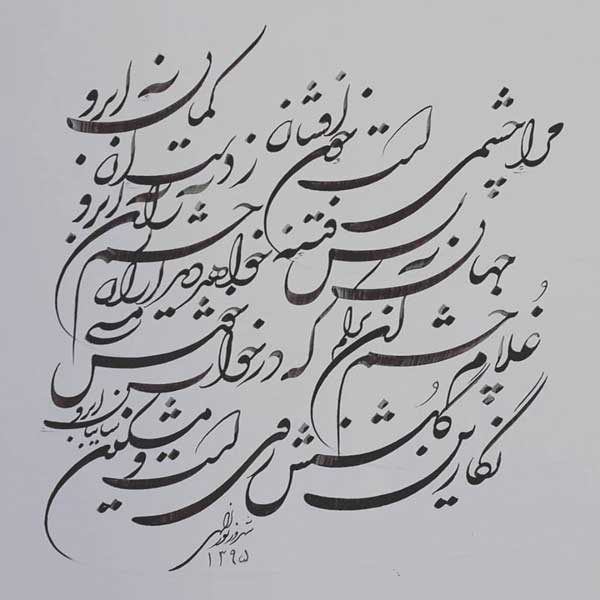 مرا چشمیست خون افشان ز دست آن کمان ابرو
جهان بس فتنه خواهد دید از آن چشم و از آن ابرو
غلام چشم آن ترکم که در خواب خوش مستی
نگارین گلشنش رویست و مشکین سایبان ابرو
۱۳۹۵